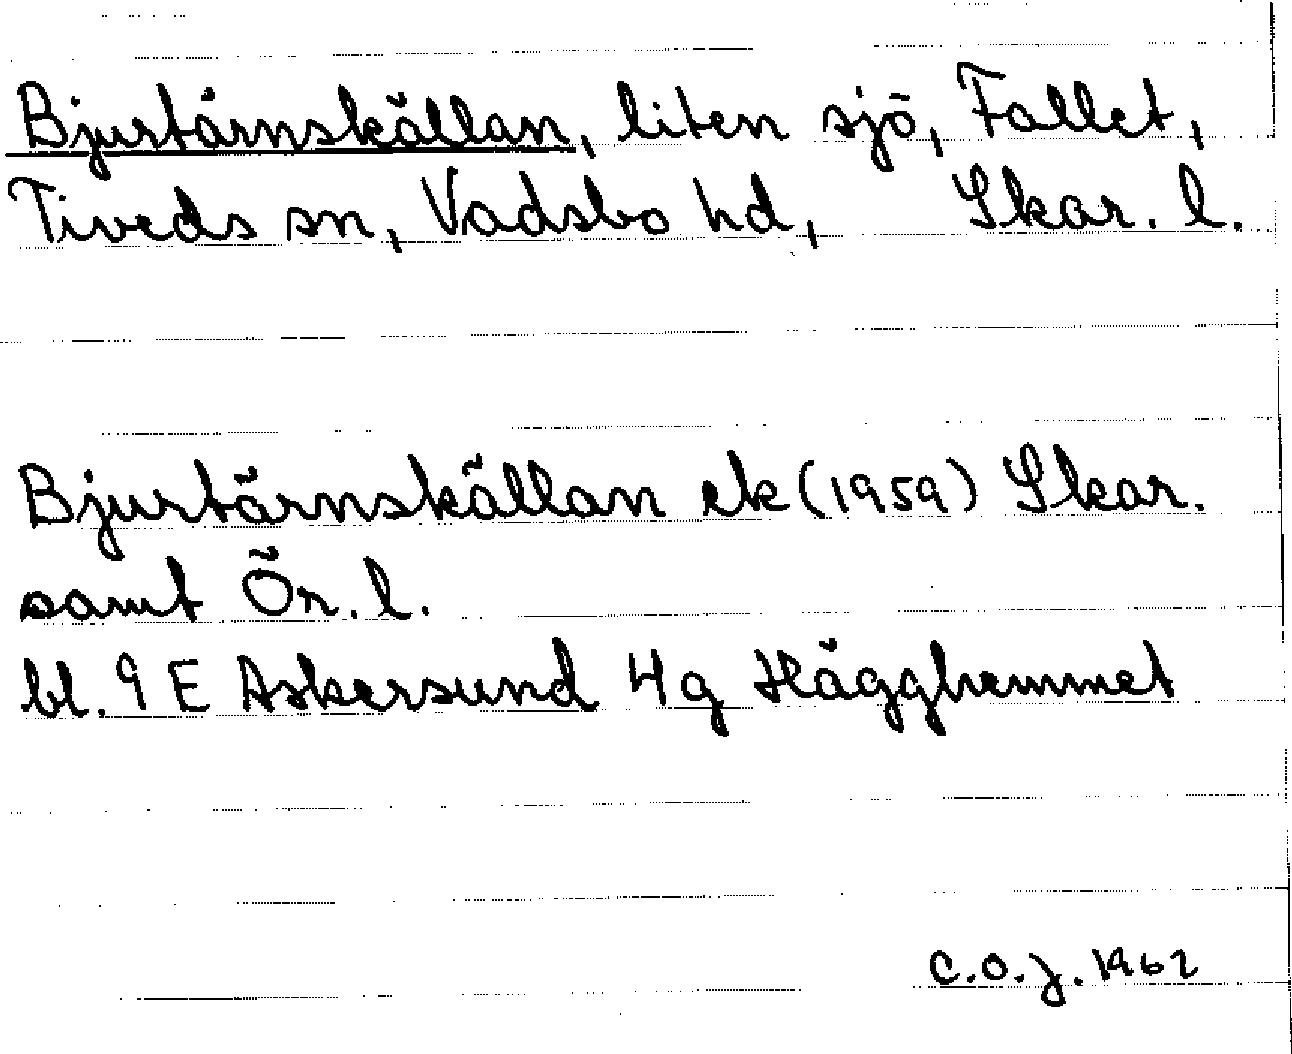 Bjurtärnskällan, liten sjö, Fallet,
Tiveds sn, Vadsbo hd, Skar. l.
Bjurtärnskällan ek (1959) Skar.
samt Ör. l.
bl. 9 E Askersund 4g Hägghemmet
C.O.J. 1962